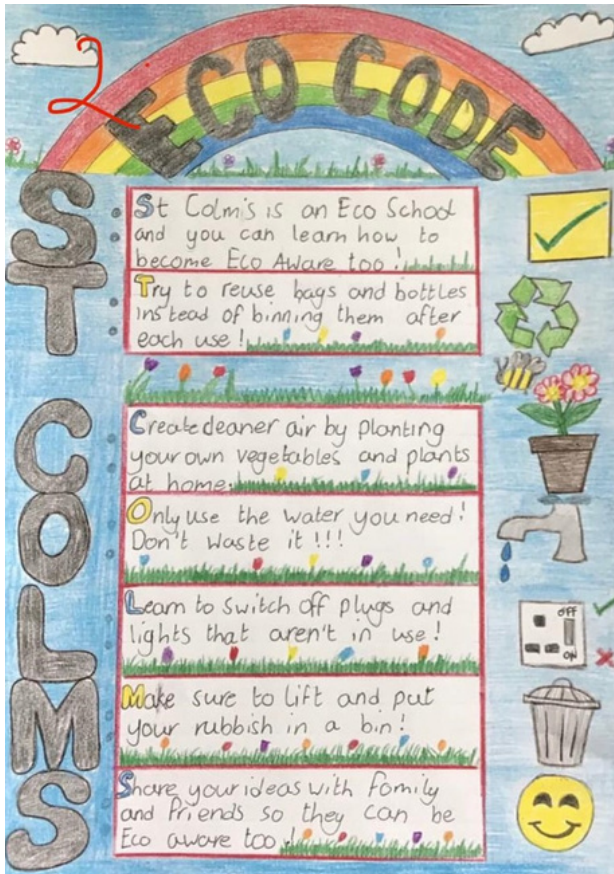 2
ECO CODE
ST
COLMS
St Colm's is an Eco School
and you can learn how to
become Eco Aware too!
Try to reuse bags and bottles
instead of binning them after
each use!
Create cleaner air by planting
your own vegetables and plants
at home.
Only use the water you need!
Don't waste it!!!
Learn to switch off plugs and
lights that aren't in use!
OFF
ON
Make sure to lift and put
your rubbish in a bin!
Share your ideas with family
and friends so they can be
Eco aware too!